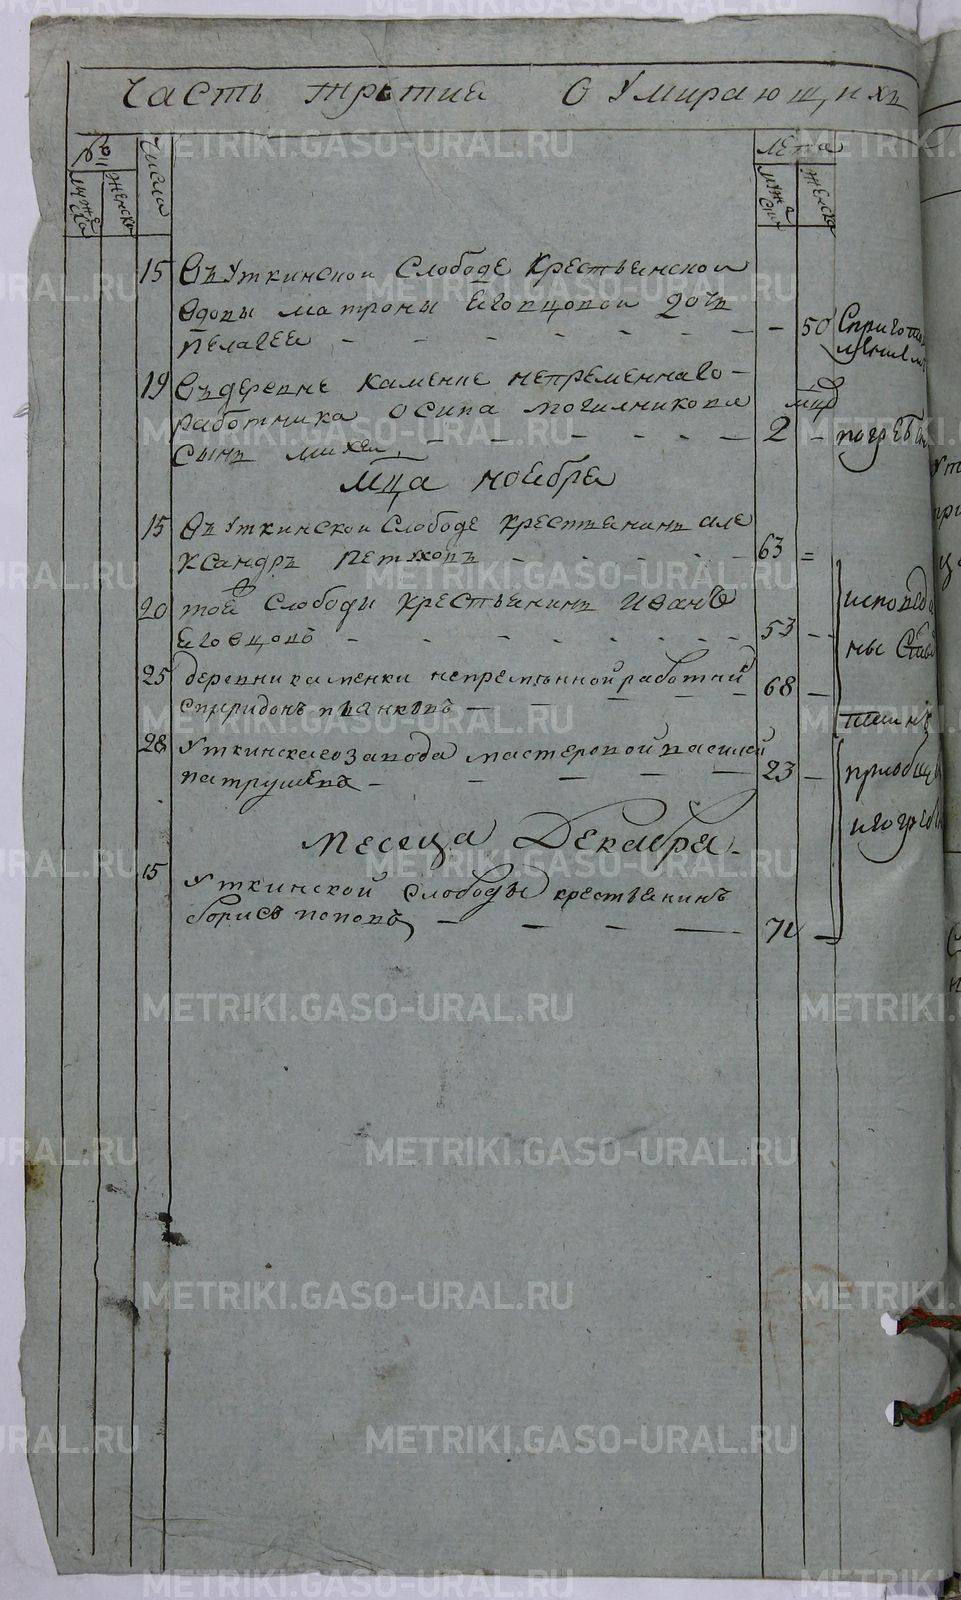 Часть третиа О Умирающихъ
Числа
мужеска
женска
Лета
мужска
женска
15 Въ Уткинской Слободе Крестьянской
вдовы матроны Еговцовой дочь
Пелагея - - - - - - - - 50
19 Въ деревне Каменке непременнаго
работника Осипа могилникова
сынъ михей - - - - - 2 - погребены
мца
Мца ноебря
15 Въ Уткинской Слободе крестьянинъ але
ксандръ Петуховъ - - - - - 63 =
20 той Слободы крестьянинъ Иванъ
Еговцовъ - - - - - - - 53 - -
25 деревни каменки непременной работник
спиридонъ пьянковъ - - - - - 68 -
28 Уткинскаго завода мастеровой василей
патрушевъ - - - - - - 23 -
Месеца Декабра
15 Уткинской слободы крестьянинъ
борисъ поповъ - - - - 71 -
METRIKI.GASO-URAL.RU